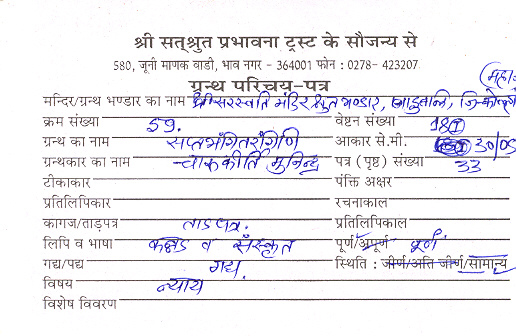 श्री सत्श्रुत प्रभावना ट्रस्ट के सौजन्य से
580, जूनी माणक वाडी, भाव नगर - 364001 फोन : 0278- 423207
ग्रन्थ परिचय-पत्र (महा.
मन्दिर/ग्रन्थ भण्डार का नाम श्री सरस्वति मंदिर श्रुत भण्डार,
क्रम संख्या 59. वेष्टन संख्या 18
ग्रन्थ का नाम सप्तभंगितरंगिणि आकार से.मी. 30/05
ग्रन्थकार का नाम चारुकीर्ति मुनिन्द्र पत्र (पृष्ठ) संख्या 33
टीकाकार पंक्ति अक्षर
प्रतिलिपिकार रचनाकाल
कागज/ताड़पत्र ताडपत्र. प्रतिलिपिकाल
लिपि व भाषा कन्नड व संस्कृत पूर्ण/अपूर्ण पूर्ण
गद्य/पद्य गद्य. स्थिति : जीर्ण/अति जीर्ण/सामान्य
विषय न्याय
विशेष विवरण